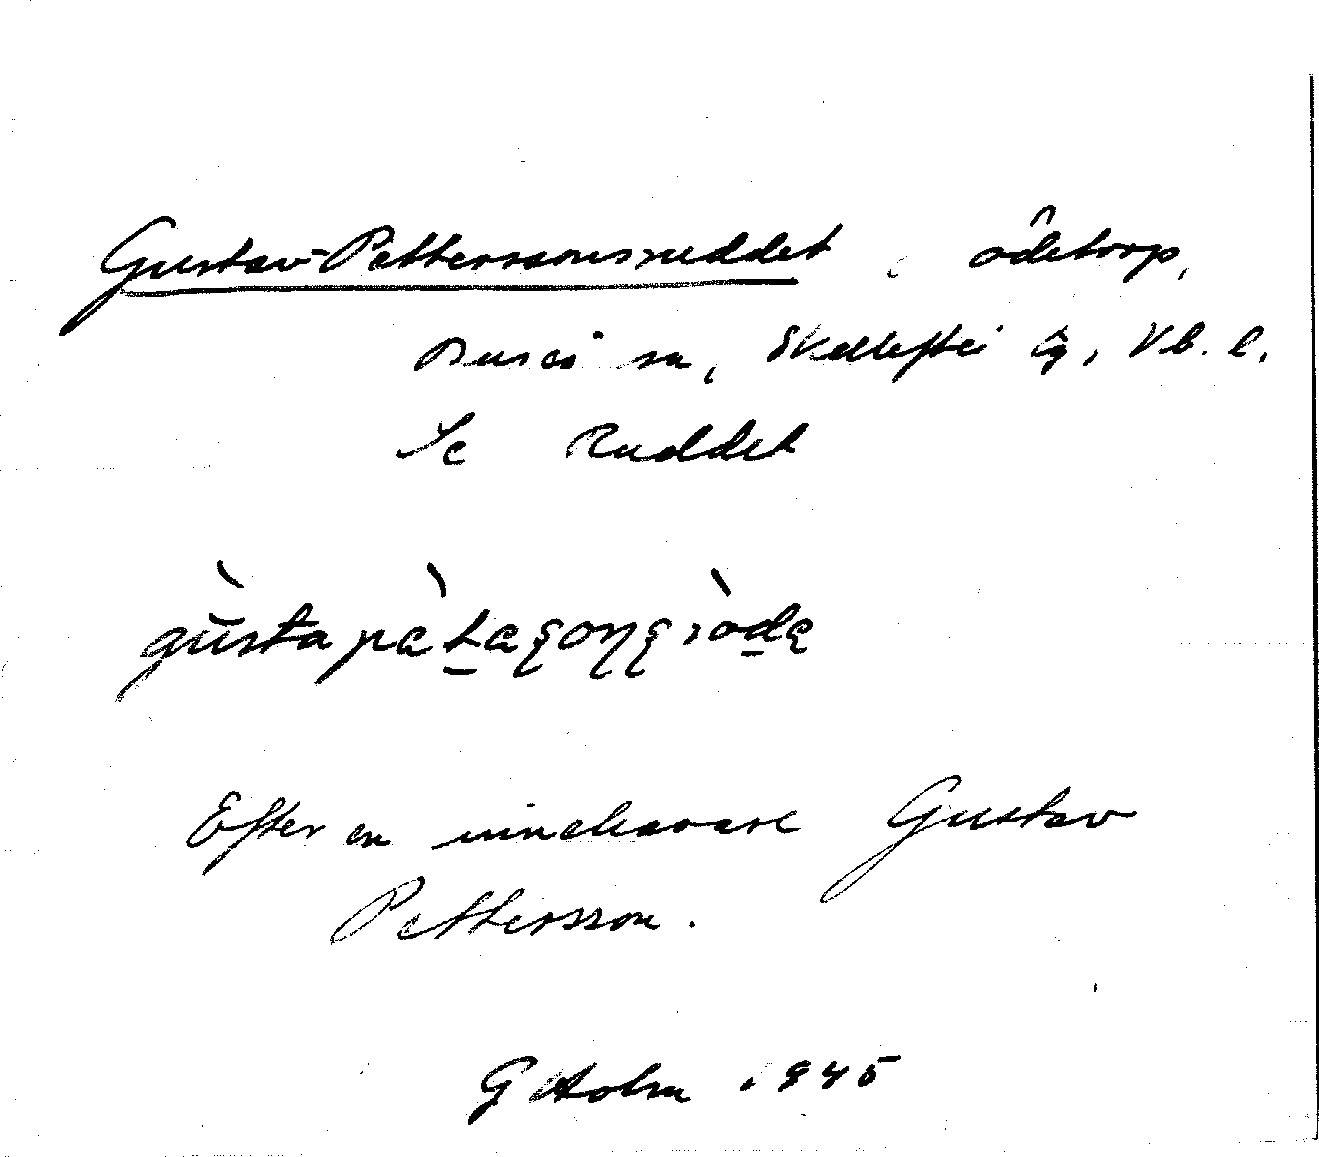 Gustav-Petterssonsruddet, ödetorp,
Bureå sn, Skellefteå tg, Vb. l.
Se Ruddet
Efter en innehavare Gustav
Pettersson.
G Holm 1945